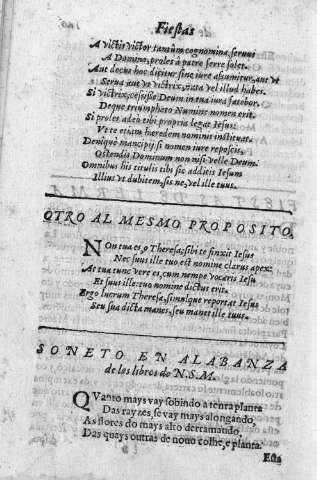 Fiestas
A victis victor tantùm cognomina, serui
A Domino, proles à patre ferre solet.
Aut decus hoc igitur sine iure assumitur, aut vt
Serua aut vt victrix, nata vel illud habes.
Si victrix, cessisse Deum in tua iura fatebor.
Deque triumphato Numine nomen erit.
Si proles adeò tibi propria legat Iesus:
Vt te etiam hæredem nominis instituat.
Denique mancipij si nomen iure reposcis,
Ostendis Dominum non nisi velle Deum.
Omnibus his titulis tibi sic addicis Iesum
Illius vt dubitem, sis ne, vel ille tuus.
OTRO AL MESMO PROPOSITO.
NOn tua es, o Theresa, sibi te finxit Iesus
Nec suus ille tuo est nomine clarus apex:
At tua tunc vere es, cum nempe vocaris Iesu
Et suus ille: tuo nomine dictus erit.
Ergo lucrum Theresa, simulque reportat Iesus
Seu sua dicta manes, seu manet ille tuus.
SONETO EN ALABANZA
de los libros de N.S.M.
QVanto mays vay sobindo a tenra planta
Das rayzes, se vay mays alongando,
As flores do mays alto derramando,
Das quays outras de nouo colhe, e planta.
Esta